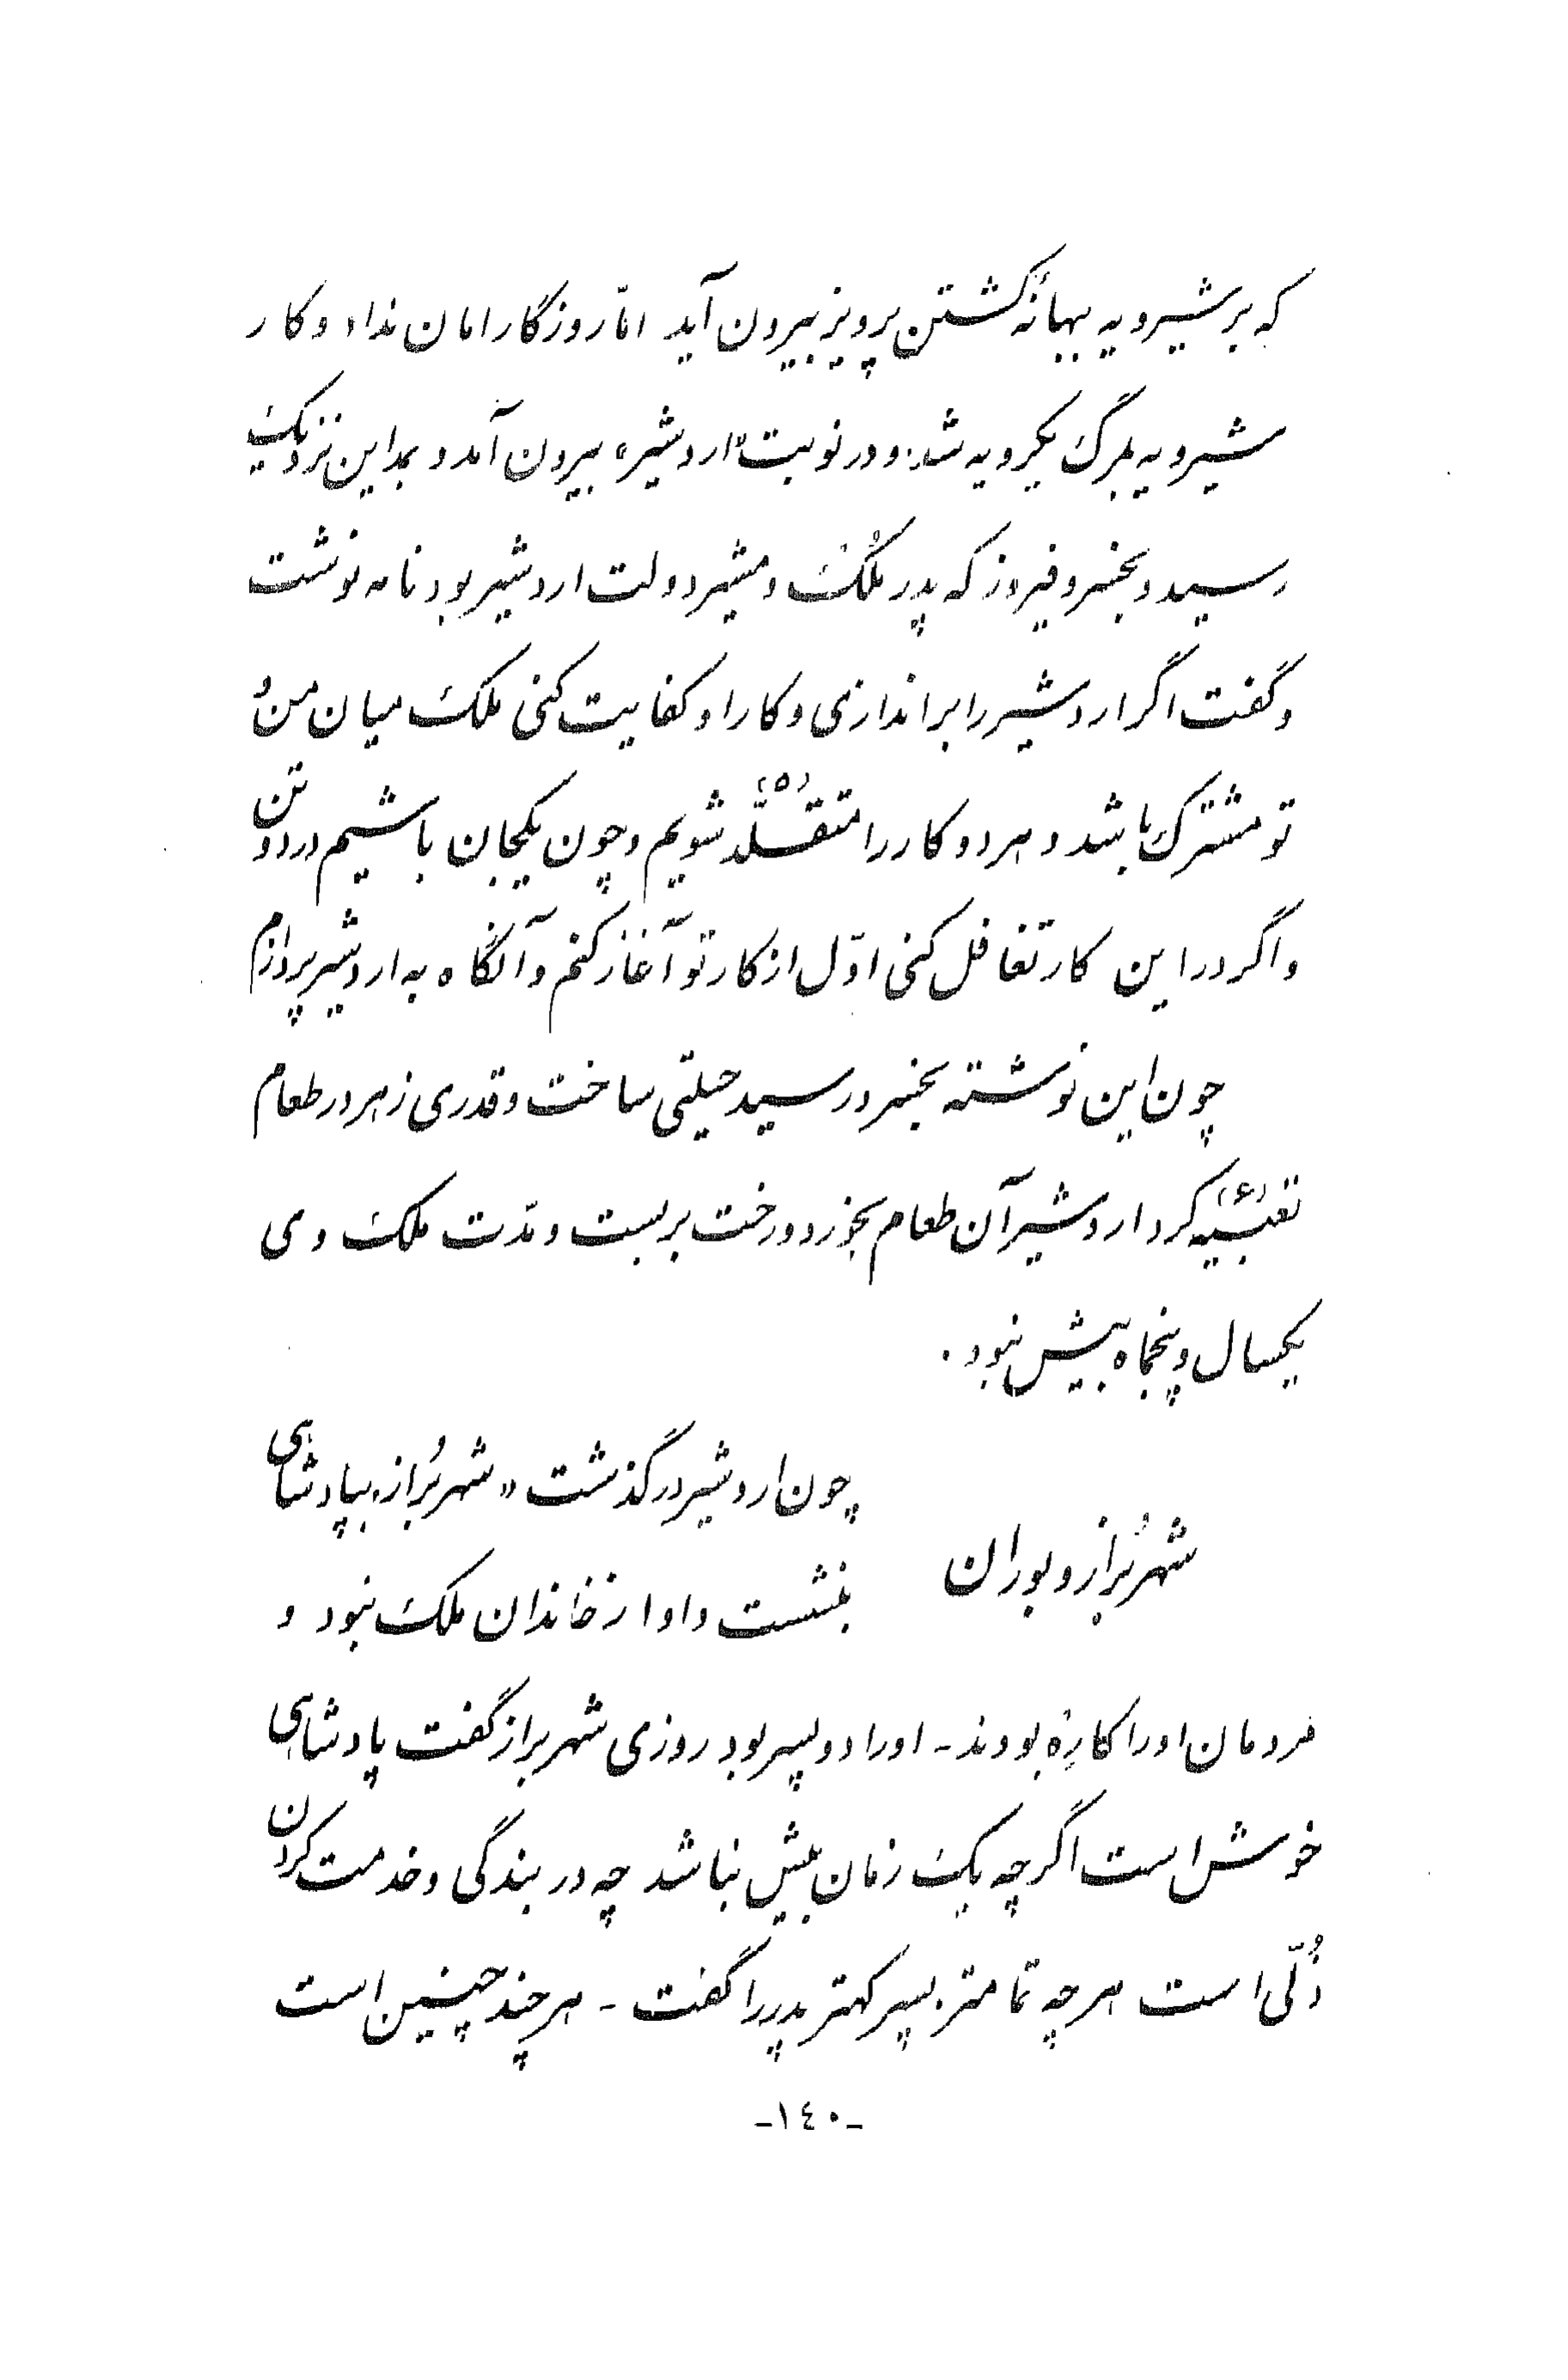 که بر شیرویه ببهانهٔ کشتن پرویز بیرون آید امّا روزگار امان نداد و کار
شیرویه بمرگ یکرویه شد. و در نوبت «اردشیر» بیرون آمد و بمداین نزدیک
رسید و بخسرو فیروز که پدر مُلک و مشیر دولت اردشیر بود نامه نوشت
و گفت اگر اردشیر را براندازی و کار او کفایت کنی ملک میان من وُ
تو مشترک باشد و هر دو کار را متقلّد (۵) شویم و چون یکجان باشیم در دو تن
و اگر در این کار تغافل کنی اوّل از کار تو آغاز کنم و آنگاه به اردشیر پردازم
چون این نوشته بخسرو رسید حیلتی ساخت و قدری زهر در طعام
تعبیه (۶) کرد اردشیر آن طعام بخورد و رخت بربست و مدّت ملک وی
یکسال و پنجماه بیش نبود.
چون اردشیر درگذشت «شهربُراز» بپادشاهی
شهربُراز و بوران
بنشست و او از خاندان ملک نبود و
مردمان او را کارِه بودند ـ او را دو پسر بود روزی شهربراز گفت پادشاهی
خوش است اگرچه یک زمان بیش نباشد چه در بندگی و خدمت کردن
ذُلّی است هرچه تمامتر. پسر کهتر پدر را گفت ـ هر چند چنین است
-١٤٠-